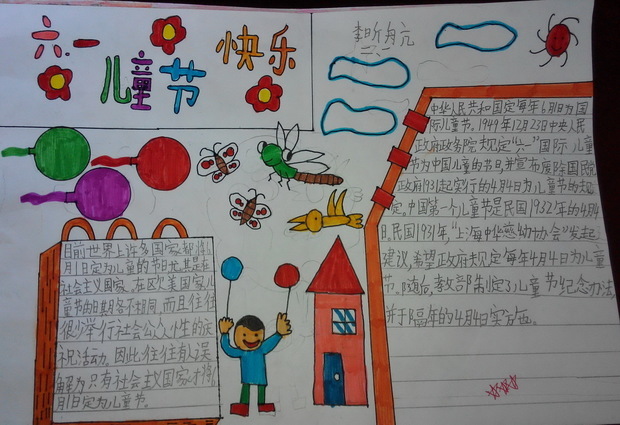 六一
儿童节
快乐
李昕舟亢
二、1
目前世界上许多国家都将6
月1日定为儿童的节日尤其是在
社会主义国家。在欧美国家,儿
童节的日期各不相同,而且往往
很少举行社会公众性的庆
祝活动。因此往往有人误
解为只有社会主义国家才将6
月1日定为儿童节。
中华人民共和国定每年6月1日为国
际儿童节。1949年12月23日中央人民
政府政务院规定“六一”国际儿童
节为中国儿童的节日,并宣布废除国民
政府1931起实行的4月4日为儿童节的规
定。中国第一个儿童节是民国1932年的4月4
日。民国1931年,“上海中华慈幼协会”发起
建议,希望政府规定每年4月4日为儿童
节。随后,教部制定了儿童节纪念办法,
并于隔年的4月4日实施。